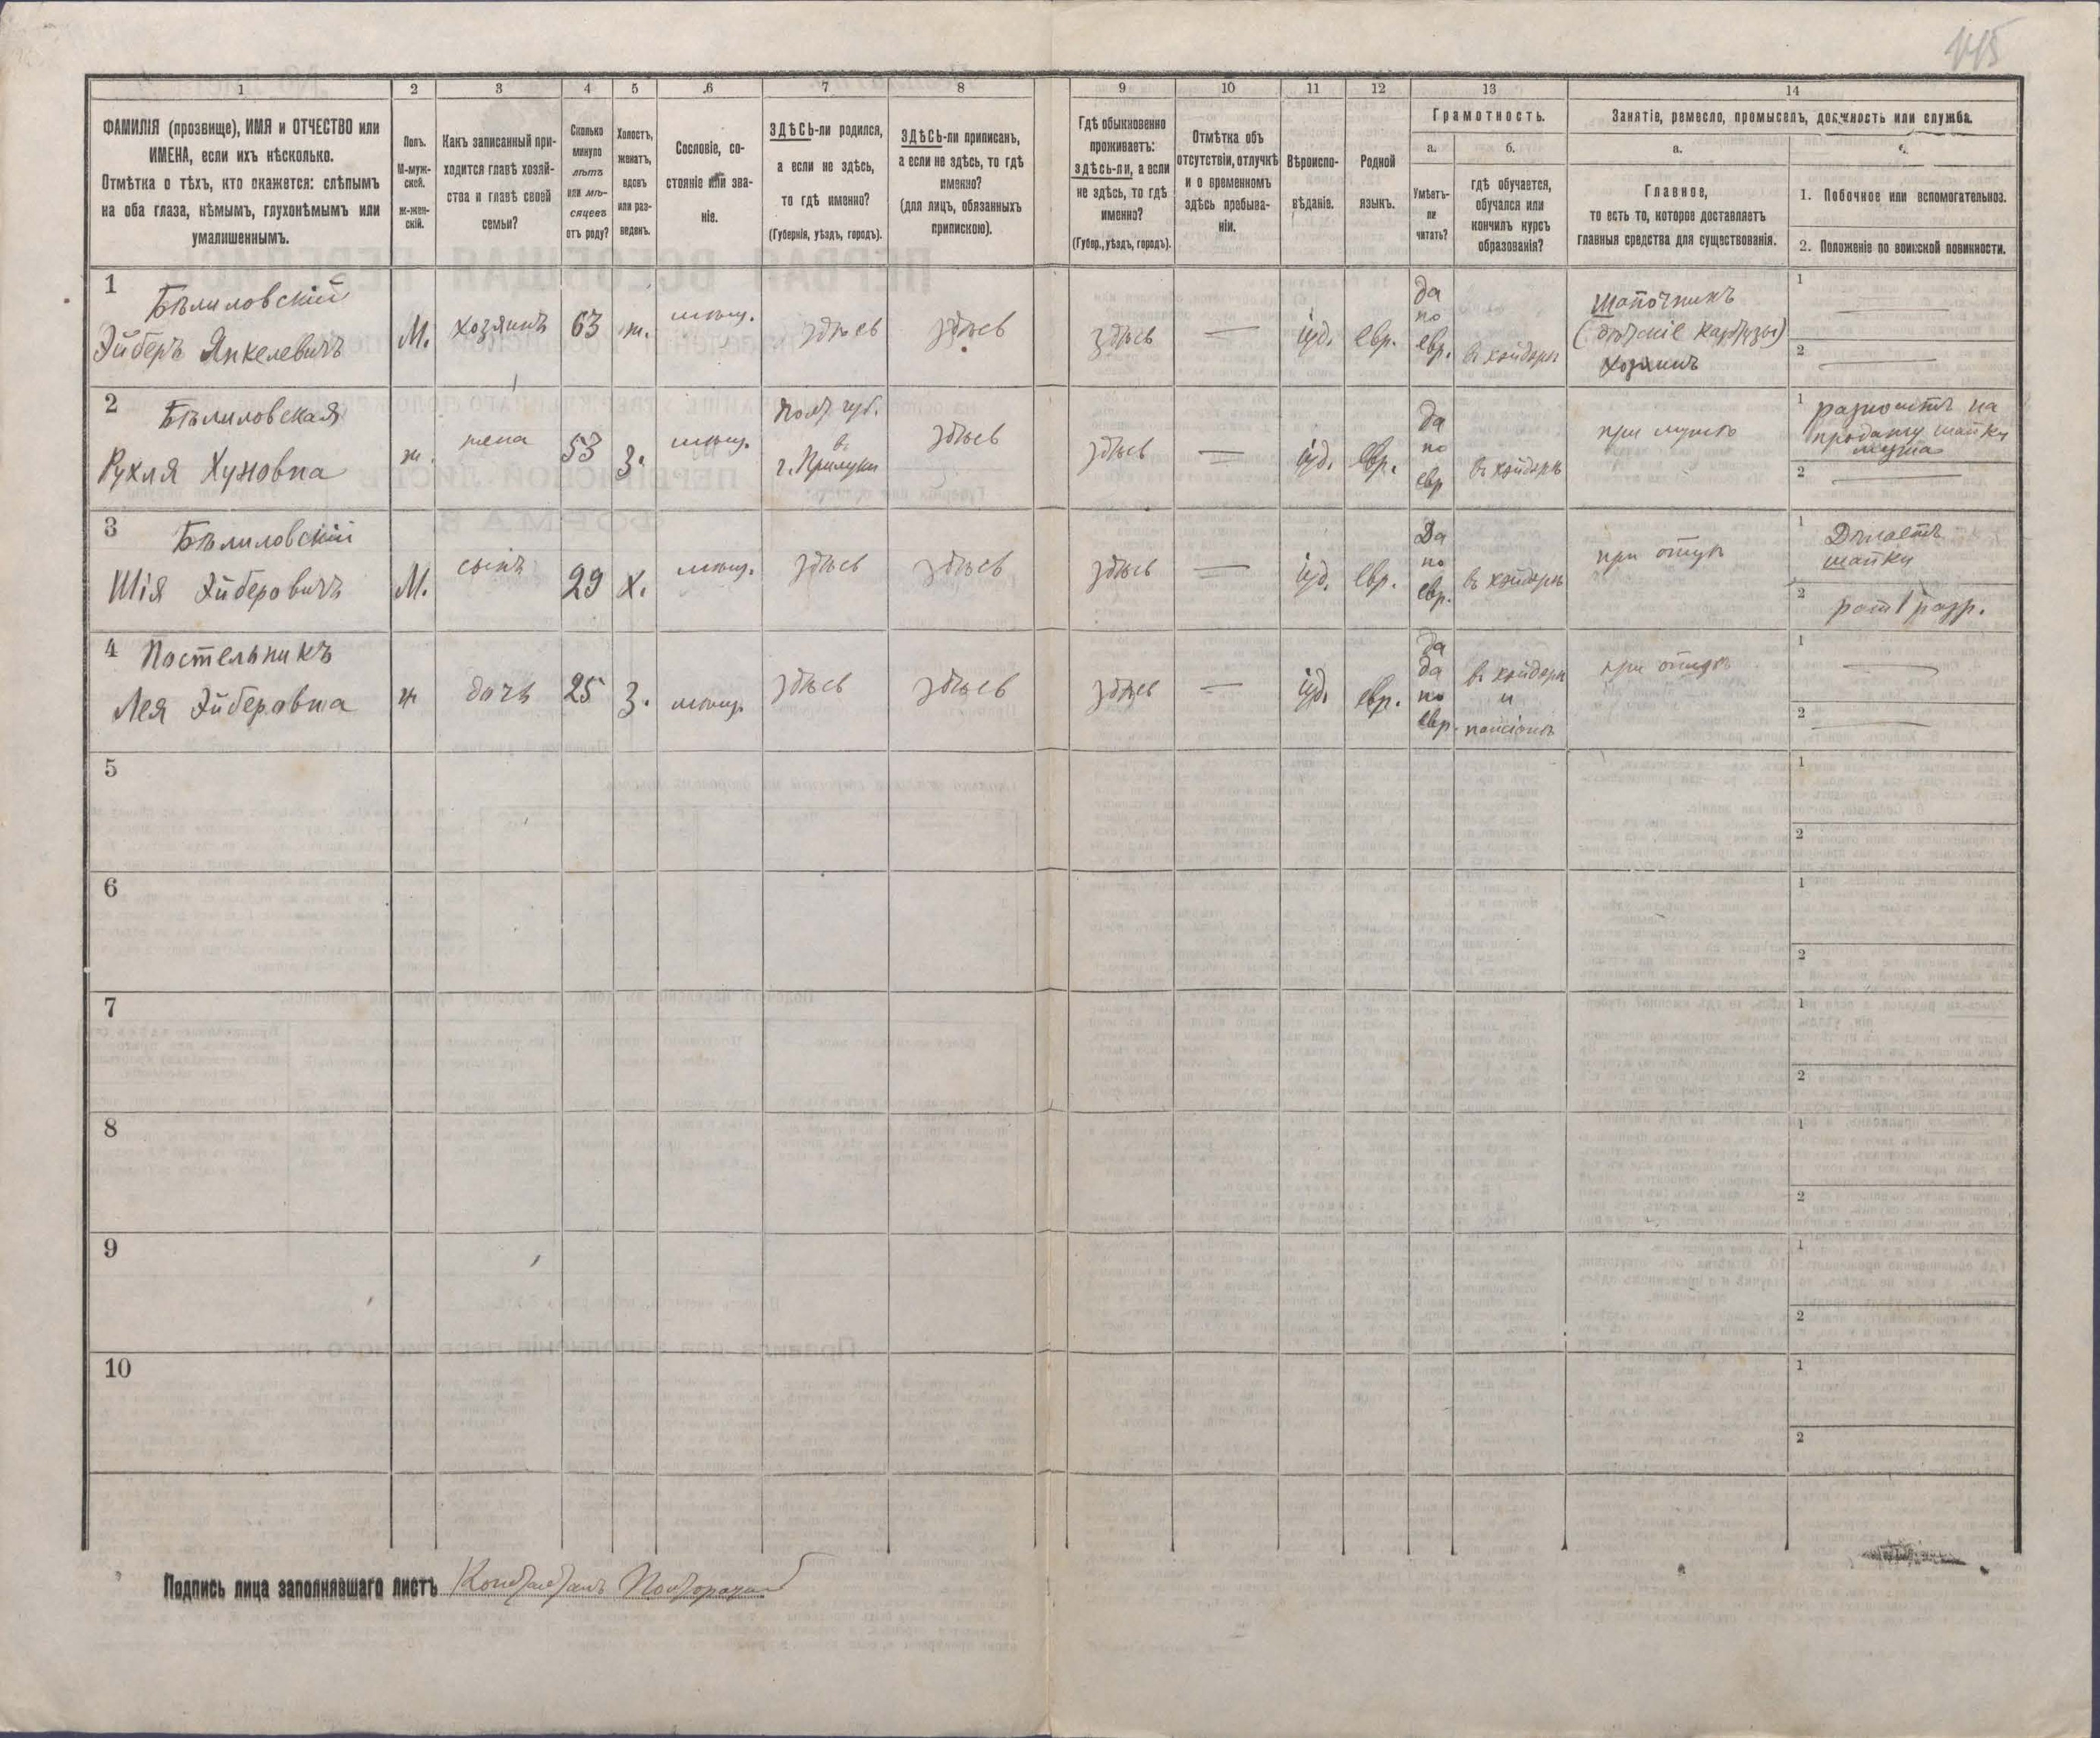 145
1 2 3 4 5 6 7 8 9 10 11 12 13 14
ФАМИЛІЯ (прозвище), ИМЯ и ОТЧЕСТВО или
ИМЕНА, если ихъ нѣсколько.
Отмѣтка о тѣхъ, кто окажется: слѣпымъ
на оба глаза, нѣмымъ, глухонѣмымъ или
умалишеннымъ.
Полъ.
М-муж-
ской.
ж-жен-
скій.
Какъ записанный при-
ходится главѣ хозяй-
ства и главѣ своей
семьи?
Сколько
минуло
лѣтъ
или мѣ-
сяцевъ
отъ роду?
Холостъ,
женатъ,
вдовъ
или раз-
веденъ.
Сословіе, со-
стояніе или зва-
ніе.
ЗДѢСЬ-ли родился,
а если не здѣсь,
то гдѣ именно?
(Губернія, уѣздъ, городъ).
ЗДѢСЬ-ли приписанъ,
а если не здѣсь, то гдѣ
именно?
(для лицъ, обязанныхъ
припискою).
Гдѣ обыкновенно
проживаетъ:
здѣсь-ли, а если
не здѣсь, то гдѣ
именно?
(Губер., уѣздъ, городъ).
Отмѣтка объ
отсутствіи, отлучкѣ
и о временномъ
здѣсь пребыва-
ніи.
Вѣроиспо-
вѣданіе.
Родной
языкъ.
Грамотность.
а.
Умѣетъ-
ли
читать?
б.
гдѣ обучается,
обучался или
кончилъ курсъ
образованія?
Занятіе, ремесло, промыселъ, должность или служба.
а.
Главное,
то есть то, которое доставляетъ
главныя средства для существованія.
1. Побочное или вспомогательное.
2. Положеніе по воинской повинности.
1 Бѣлиловскій
Эйберъ Янкелевичъ
М.
хозяинъ
63
ж.
мѣщ.
здѣсь
здѣсь
здѣсь
—
іуд.
евр.
да
по
евр.
въ хэйдерѣ
шапочникъ
(дѣтскіе картузы)
хозяинъ
1 —
2 —
2 Бѣлиловская
Рухля Хуновна
ж.
жена
53
З.
мѣщ.
Полт. губ.
въ
г. Прилуки
здѣсь
здѣсь
—
іуд.
евр.
да
по
евр
въ хэйдерѣ
при мужѣ
1 разноситъ на
продажу шапки
мужа
2 —
3 Бѣлиловскій
Шія Эйберовичъ
М.
сынъ
29
Х.
мѣщ.
здѣсь
здѣсь
здѣсь
—
іуд.
евр.
Да
по
евр.
въ хэйдерѣ
при отцѣ
1 Дѣлаетъ
шапки
2 рат. 1 разр.
4 Постельникъ
Лея Эйберовна
ж
дочь
25
З.
мѣщ.
здѣсь
здѣсь
здѣсь
—
іуд.
евр.
да
да
по
евр.
въ хэйдерѣ
и
пансіонѣ
при отцѣ
1 —
2 —
5
1
2
6
1
2
7
1
2
8
1
2
9
1
2
10
1
2
Подпись лица заполнявшаго листъ Константинъ